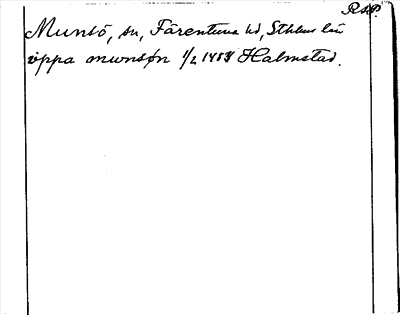 RAP.
Munsö, sn, Färentuna hd, Sthlms län
öppa munsøn 1/2 1454 Halmstad.